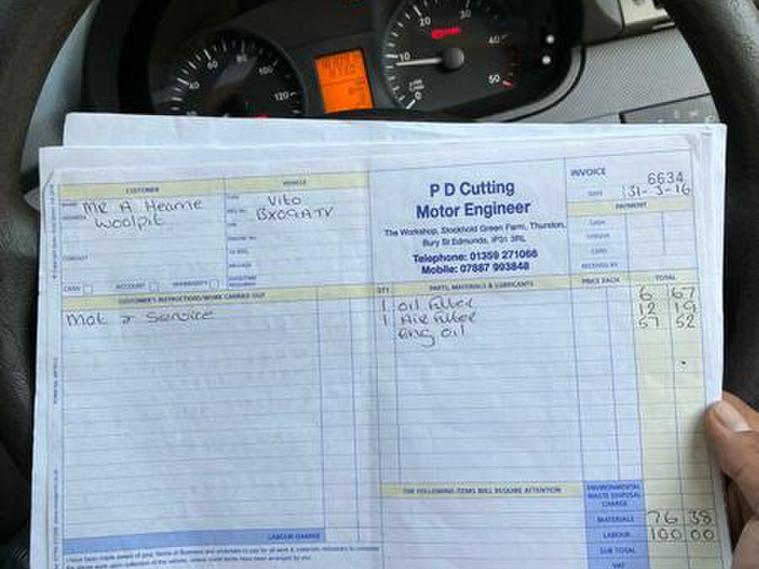 20
30
40
50
10
0
60
80
100
120
40
CUSTOMER
VEHICLE
NAME Mr A Hearne
ADDRESS Woolpit
CONTACT
CASH ACCOUNT WARRANTY
TYPE Vito
REG No. BX09ATV
ENGINE No.
MILEAGE
P D Cutting
Motor Engineer
The Workshop, Stockhold Green Farm, Thurston,
Bury St Edmunds, IP31 3RL
Telephone: 01359 271066
Mobile: 07887 993848
INVOICE 6634
DATE 31-3-16
PAYMENT
CASH
CHEQUE
CARD
RECEIVED BY
CUSTOMER'S INSTRUCTIONS/WORK CARRIED OUT
Mot & Service
QTY PARTS, MATERIALS & LUBRICANTS PRICE EACH TOTAL
1 Oil Filter 6 67
1 Air Filter 12 19
Eng Oil 57 52
THE FOLLOWING ITEMS WILL REQUIRE ATTENTION
ENVIRONMENTAL
WASTE DISPOSAL
CHARGE
MATERIALS 76 38
LABOUR 100 00
SUB TOTAL
VAT
LABOUR CHARGE